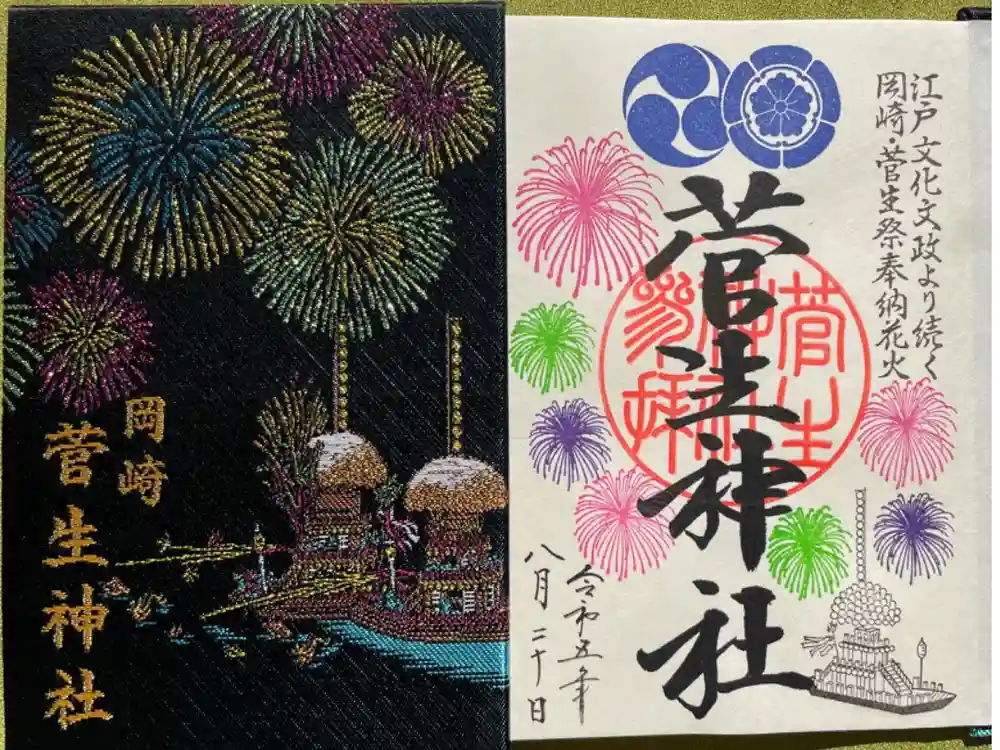 岡崎
菅生神社
江戸 文化文政より続く
岡崎・菅生祭奉納花火
菅生神社
菅生神社
参拝
令和五年
八月二十日